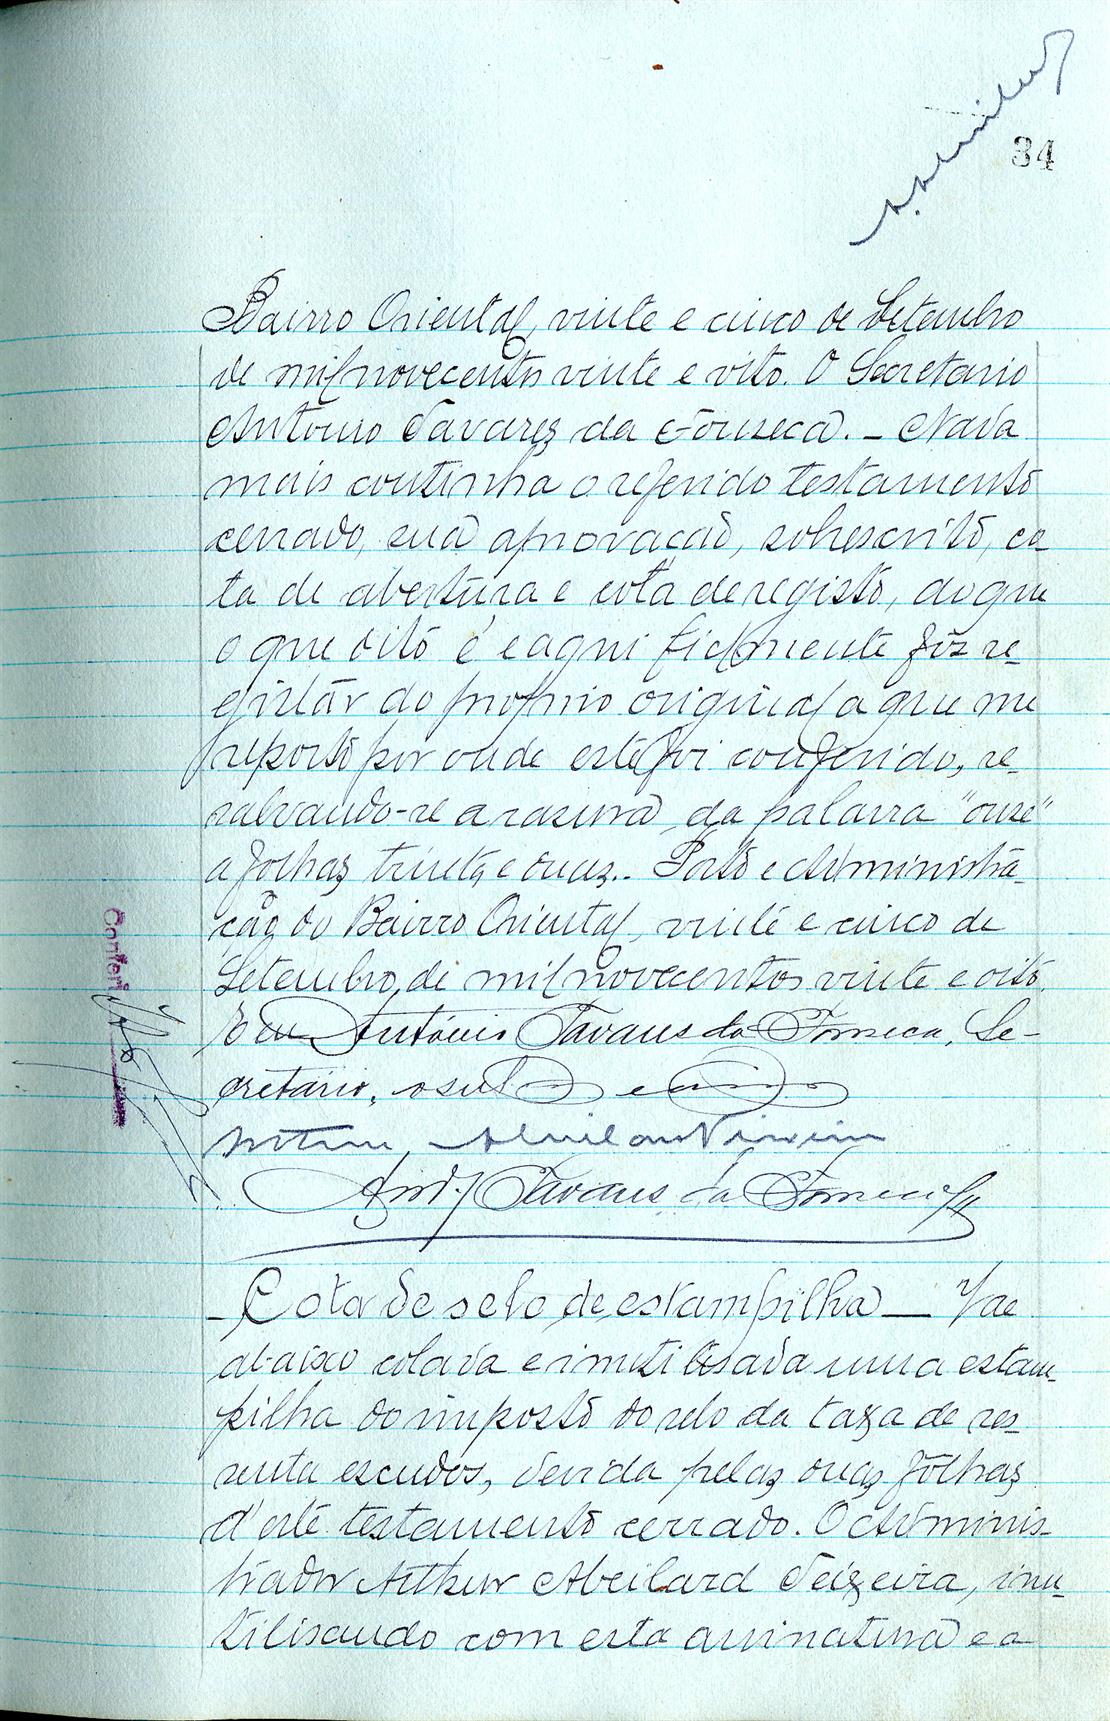 34
Bairro Oriental, vinte e cinco de Setembro
de mil novecentos vinte e oito. O Secretario
António Tavares da Fonseca. - Nada
mais continha o referido testamento
cerrado, sua aprovação, sobrescrito, co
ta de abertura e cota de registo, do que
o que dito é e aqui fielmente fiz re-
gistár do proprio original a que me
reporto por onde este foi conferido, re-
salvando-se a rasura da palavra "onze"
a folhas trinta e duas.. Porto e Administra-
ção do Bairro Oriental, vinte e cinco de
Setembro, de mil novecentos vinte e oito.
E eu António Tavares da Fonseca, Se-
cretário, o sub
Arthur Abeilard Teixeira
Antº Tavares da Fonseca
Conferi
- Cota de selo de estampilha — Vae
abaixo colada e inutilisada uma estam-
pilha do imposto do selo da taxa de ses-
senta escudos, devida pelas duas fôlhas
d'este testamento cerrado. O Adminis-
trador Arthur Abeilard Teixeira, inu-
tilisando com esta assinatura e a